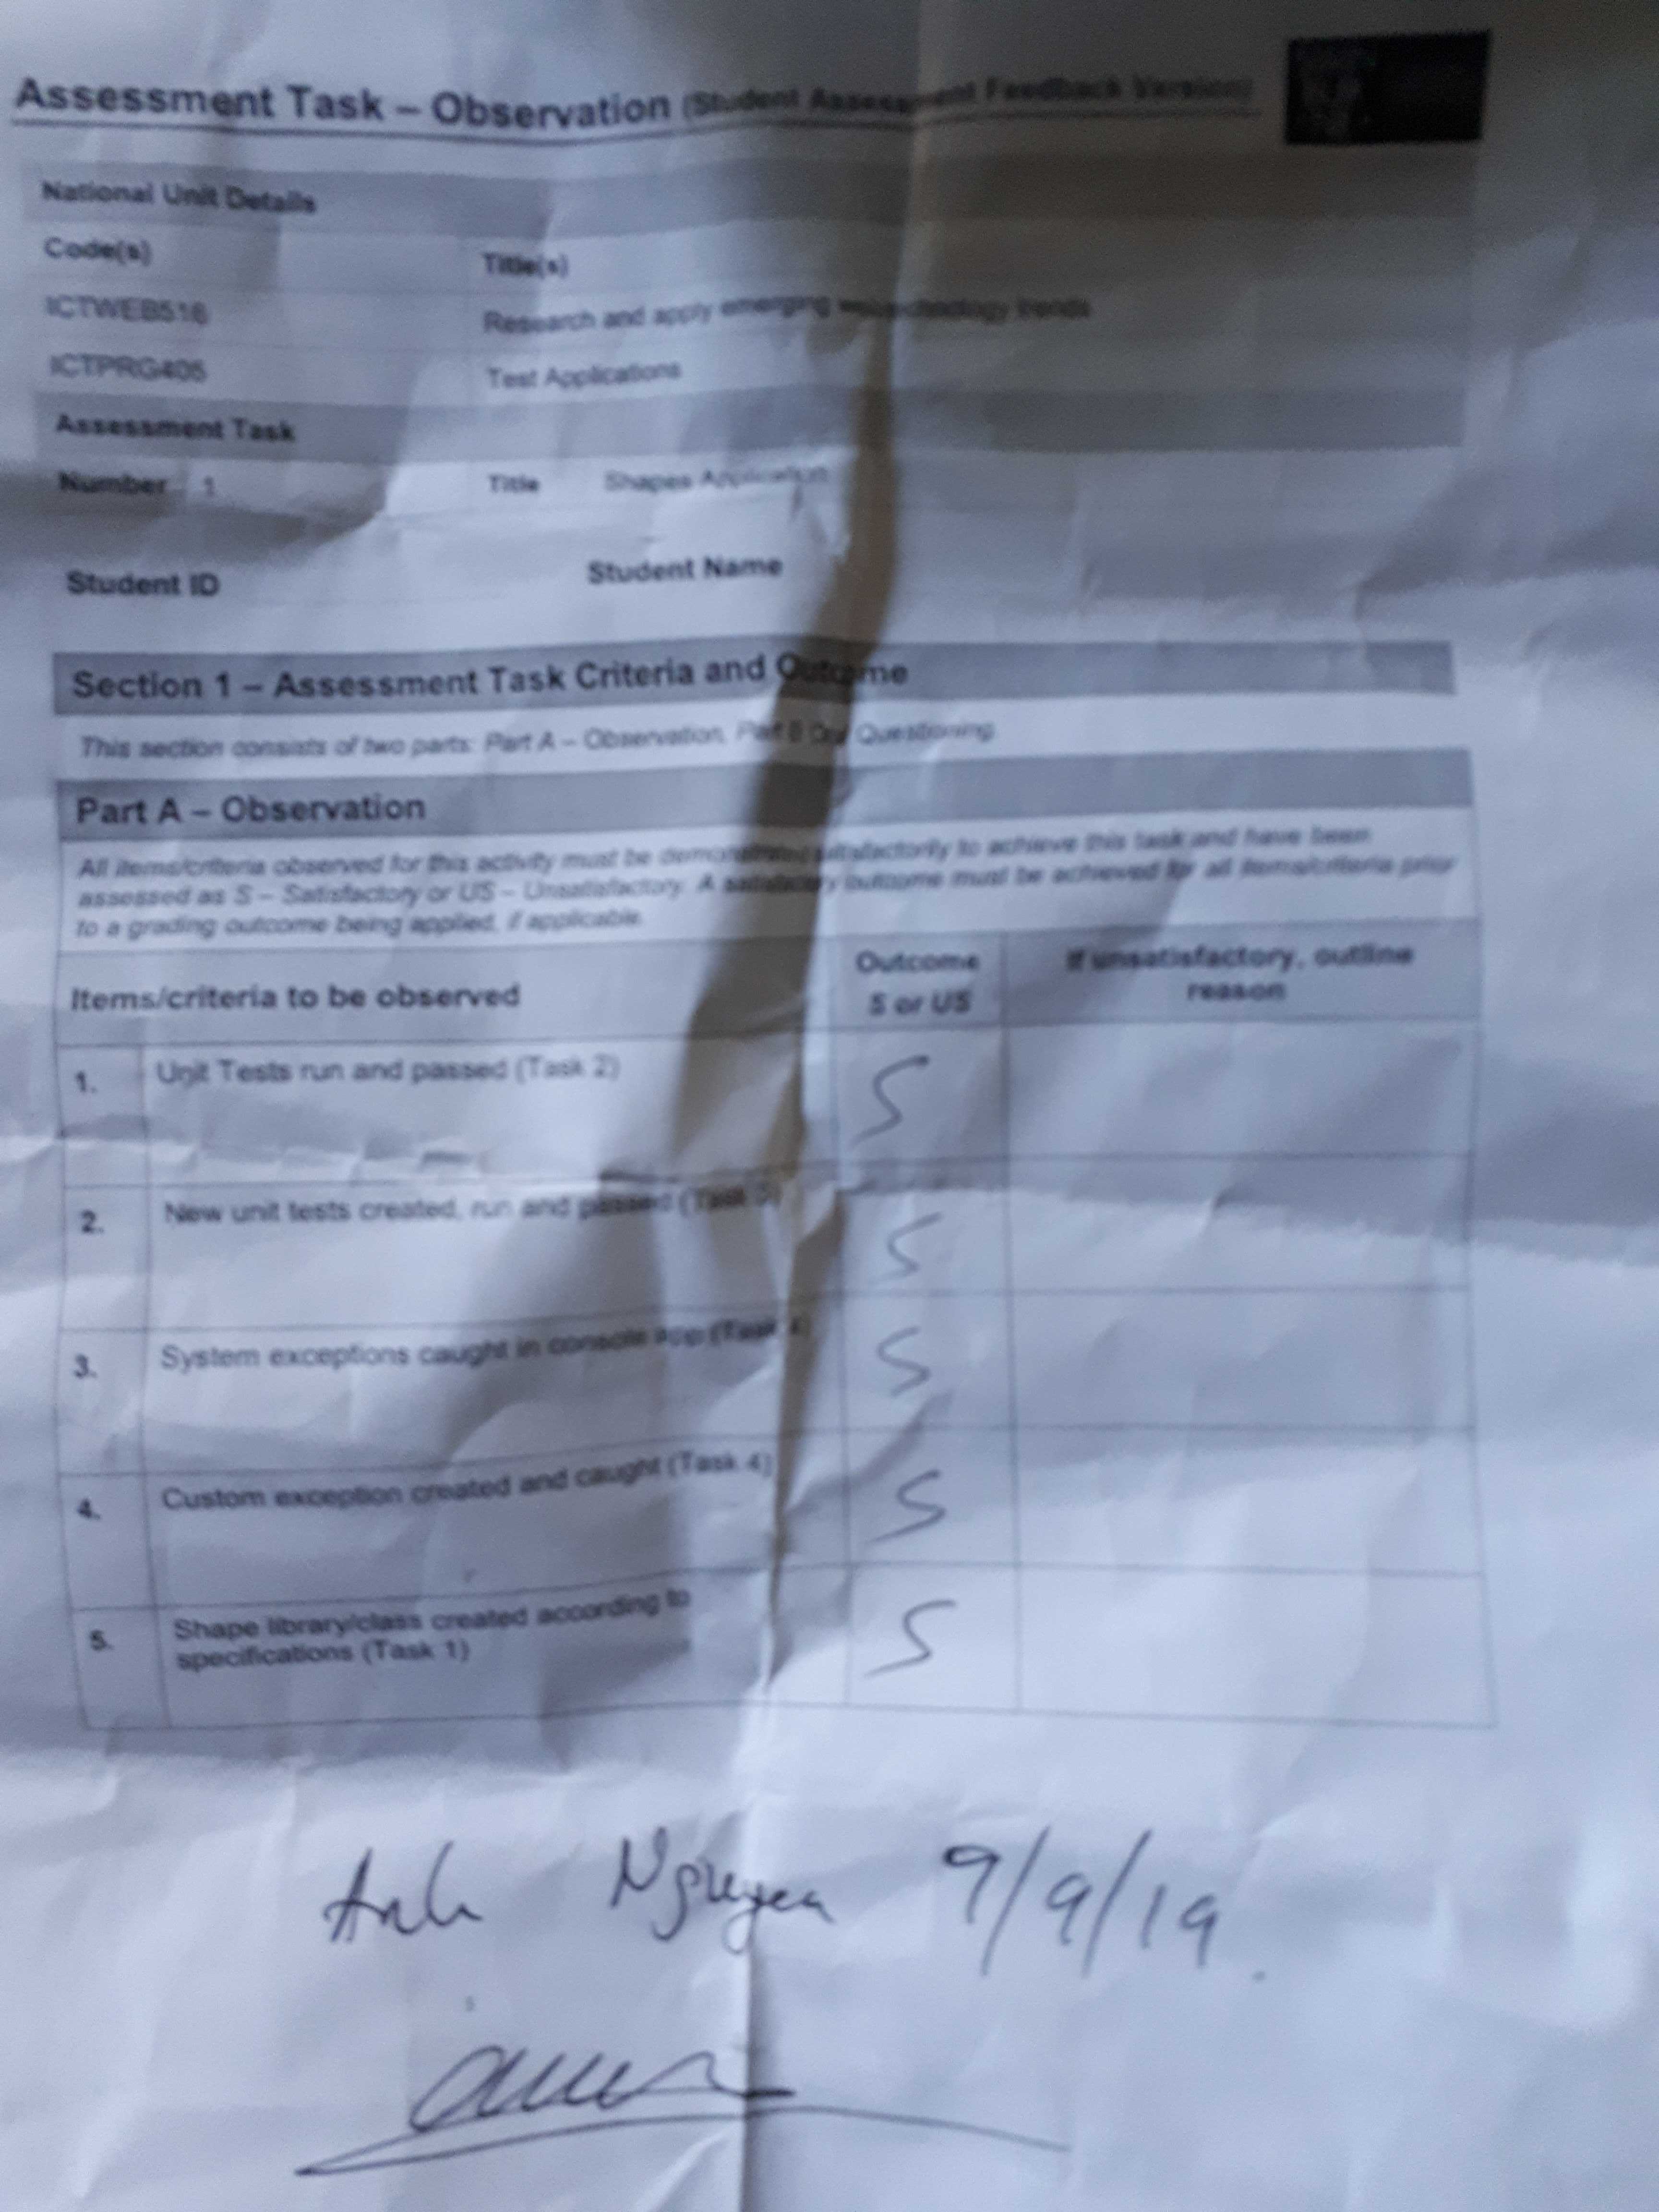 Assessment Task – Observation (Student Assessment Feedback Version)
National Unit Details
Code(s) Title(s)
ICTWEB516 Research and apply emerging web technology trends
ICTPRG405 Test Applications
Assessment Task
Number 1 Title Shapes Application
Student ID Student Name
Section 1 – Assessment Task Criteria and Outcome
This section consists of two parts: Part A – Observation, Part B Oral Questioning.
Part A – Observation
All items/criteria observed for this activity must be demonstrated satisfactorily to achieve this task and have been
assessed as S – Satisfactory or US – Unsatisfactory. A satisfactory outcome must be achieved for all items/criteria prior
to a grading outcome being applied, if applicable.
Items/criteria to be observed Outcome S or US If unsatisfactory, outline reason
1. Unit Tests run and passed (Task 2) S
2. New unit tests created, run and passed (Task 3) S
3. System exceptions caught in console app (Task 4) S
4. Custom exception created and caught (Task 4) S
5. Shape library/class created according to
specifications (Task 1) S
Anh Nguyen 9/9/19.